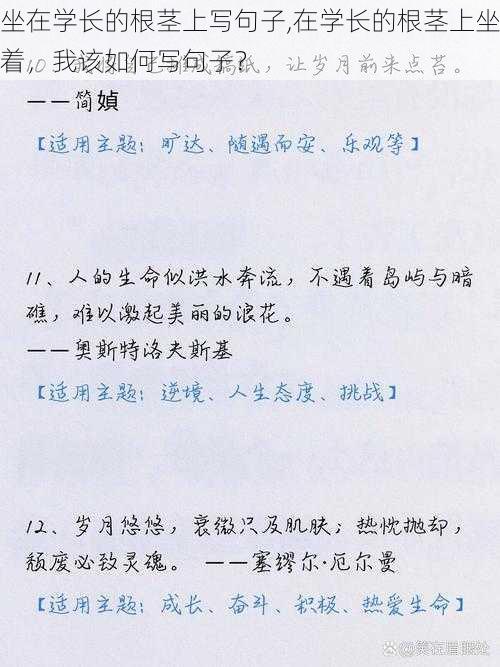 坐在学长的根茎上写句子,在学长的根茎上坐
着，我该如何写句子？
纸，让岁月前来点苔。
——简媜
【适用主题：旷达、随遇而安、乐观等】
11、人的生命似洪水奔流，不遇着岛屿与暗
礁，难以激起美丽的浪花。
——奥斯特洛夫斯基
【适用主题：逆境、人生态度、挑战】
12、岁月悠悠，衰微只及肌肤；热忱抛却，
颓废必致灵魂。 ——塞缪尔·厄尔曼
【适用主题：成长、奋斗、积极、热爱生命】